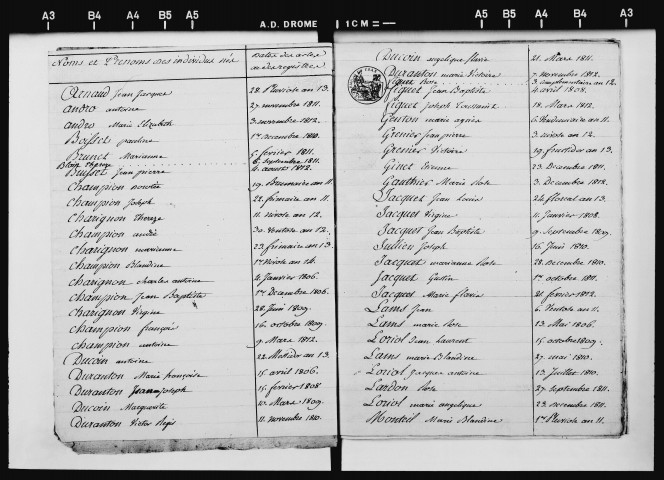 A3 A4 B4 B5 A5 A.D. DROME 1 CM A5 B5 A4 B4 A3
Noms et Prenoms des individus nés
Dattes des actes ou des registres
Arnaud jean jacques 28. Pluviose an 13.
andro antoine 27. novembre 1811.
andro Marie Elizabeth 3. novembre 1812.
Boisset pauline 1er decembre 1810.
Brunet Marianne 5. fevrier 1811.
Blain therese 6. Septembre 1811.
Buisset jean pierre 4. aout 1812.
Champion 19. Brumaire an 11.
Champion Joseph 22. frimaire an 11.
Charignon Thereze 11. nivose an 12.
Champion andré 30. Ventose an 12.
Charignon marianne 23. frimaire an 13.
Champion Blandine 1er Nivose an 14.
Charignon charles antoine 4. Janvier 1806.
Champion Jean Baptiste 1er Decembre 1806.
Charignon Virgine 28. Juin 1809.
Champion françois 16. octobre 1809.
Champion antoine 9. Mars 1812.
Ducoin antoine 22. Messidor an 13.
Duranton Marie françoise 15. avril 1806.
Duranton Joseph 15. fevrier 1808
Ducoin Marguerite 10. Mars 1809.
Duranton Victor Regis 11. novembre 1810.
Ducoin angelique flavie 21. Mars 1811.
Duranton marie Victoire 7. novembre 1812.
Figuet Rose 3. complementaire an 12.
Figuet Jean Baptiste 4. avril 1808.
Figuet Joseph Toussaint 18. Mars 1812.
Gonton marie agnès 6. Vendemiaire an 11.
Grenier jean pierre 3. nivose an 12.
Grenier Victoire 19. fructidor an 13.
Ginet Etienne 23. Decembre 1811.
Gauthier Marie Rose 3. Decembre 1812.
Jacquet Jean Louis 24. floreal an 13.
Jacquet Virgine 11. Janvier 1808.
Jacquet Jean Baptiste 9. Septembre 1809.
Jullien Joseph 16. Juin 1810.
Jacquet marianne Rose 28. Decembre 1810.
Jacquet Gustin 1er octobre 1811.
Jacquet Marie flavie 21. fevrier 1812.
Lams Jean 6. Ventose an 11.
Lams marie Rose 13. Mai 1806.
Loriol Jean Laurent 15. octobre 1809.
Lams marie Blandine 27. mai 1810.
Loriol Jacques antoine 13. Juillet 1810.
Lardon Rose 27. septembre 1811.
Loriol marie angelique 23. novembre 1811.
Monteil Marie Blandine 1er Pluviose an 11.